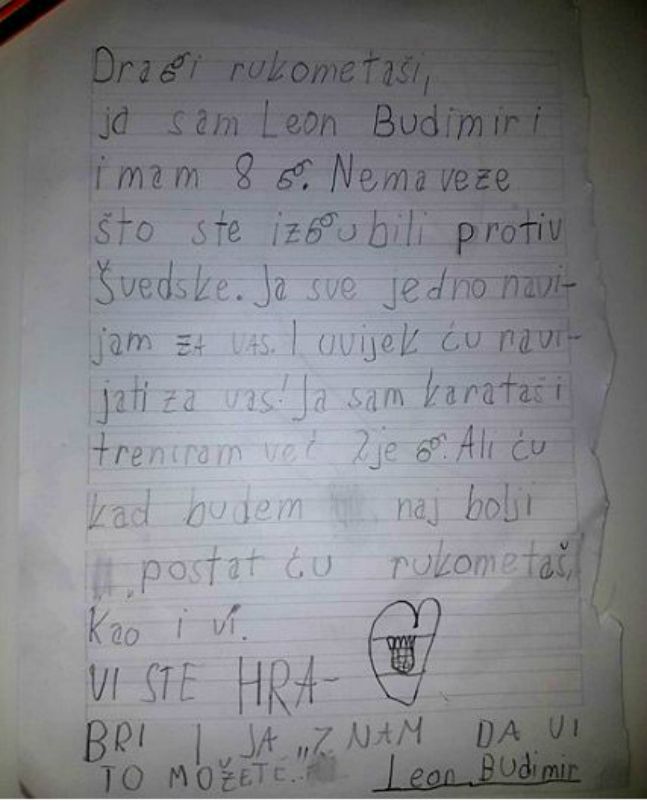 Dragi rukometaši,
ja sam Leon Budimir i
imam 8 g. Nema veze
što ste izgubili protiv
Švedske. Ja sve jedno navi-
jam ZA VAS. I uvijek ću navi-
jati za vas! Ja sam karataš i
treniram već 2je g. Ali ću
kad budem naj bolji
postat ću rukometaš,
Kao i vi.
VI STE HRA-
BRI I JA „ZNAM DA VI
TO MOŽETE..
Leon Budimir